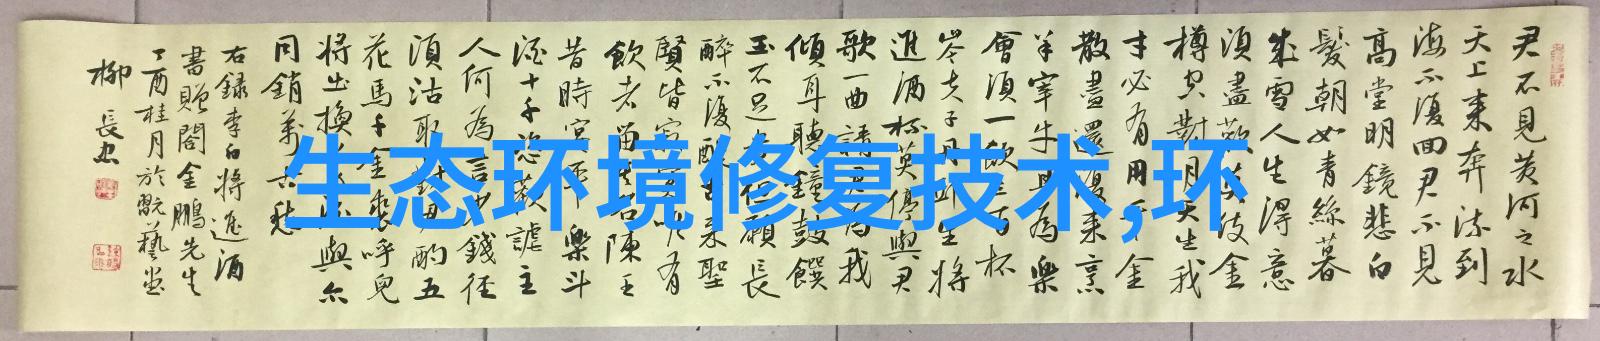 君不見黄河之水
天上来奔流到
海不復回君不見
高堂明鏡悲白
髮朝如青絲暮
成雪人生得意
須盡歡莫使金
樽空對月天生我
才必有用千金
散盡還復来烹
羊宰牛且為樂
會須一飲三百杯
岑夫子丹邱生將
進酒杯莫停與君
歌一曲請君為我
傾耳聽鐘鼓饌
玉不足貴但願長
醉不復醒古来聖
賢皆寂寞唯有
飲者留其名陳王
昔時宴平樂斗
酒十千恣歡謔主
人何為言少錢徑
須沽取對君酌五
花馬千金裘呼兒
將出換美酒與尔
同銷萬古愁
右録李白將進酒
書贈閻金鵬先生
丁酉桂月於翫藝堂
柳長忠
生态环境修复技术,环